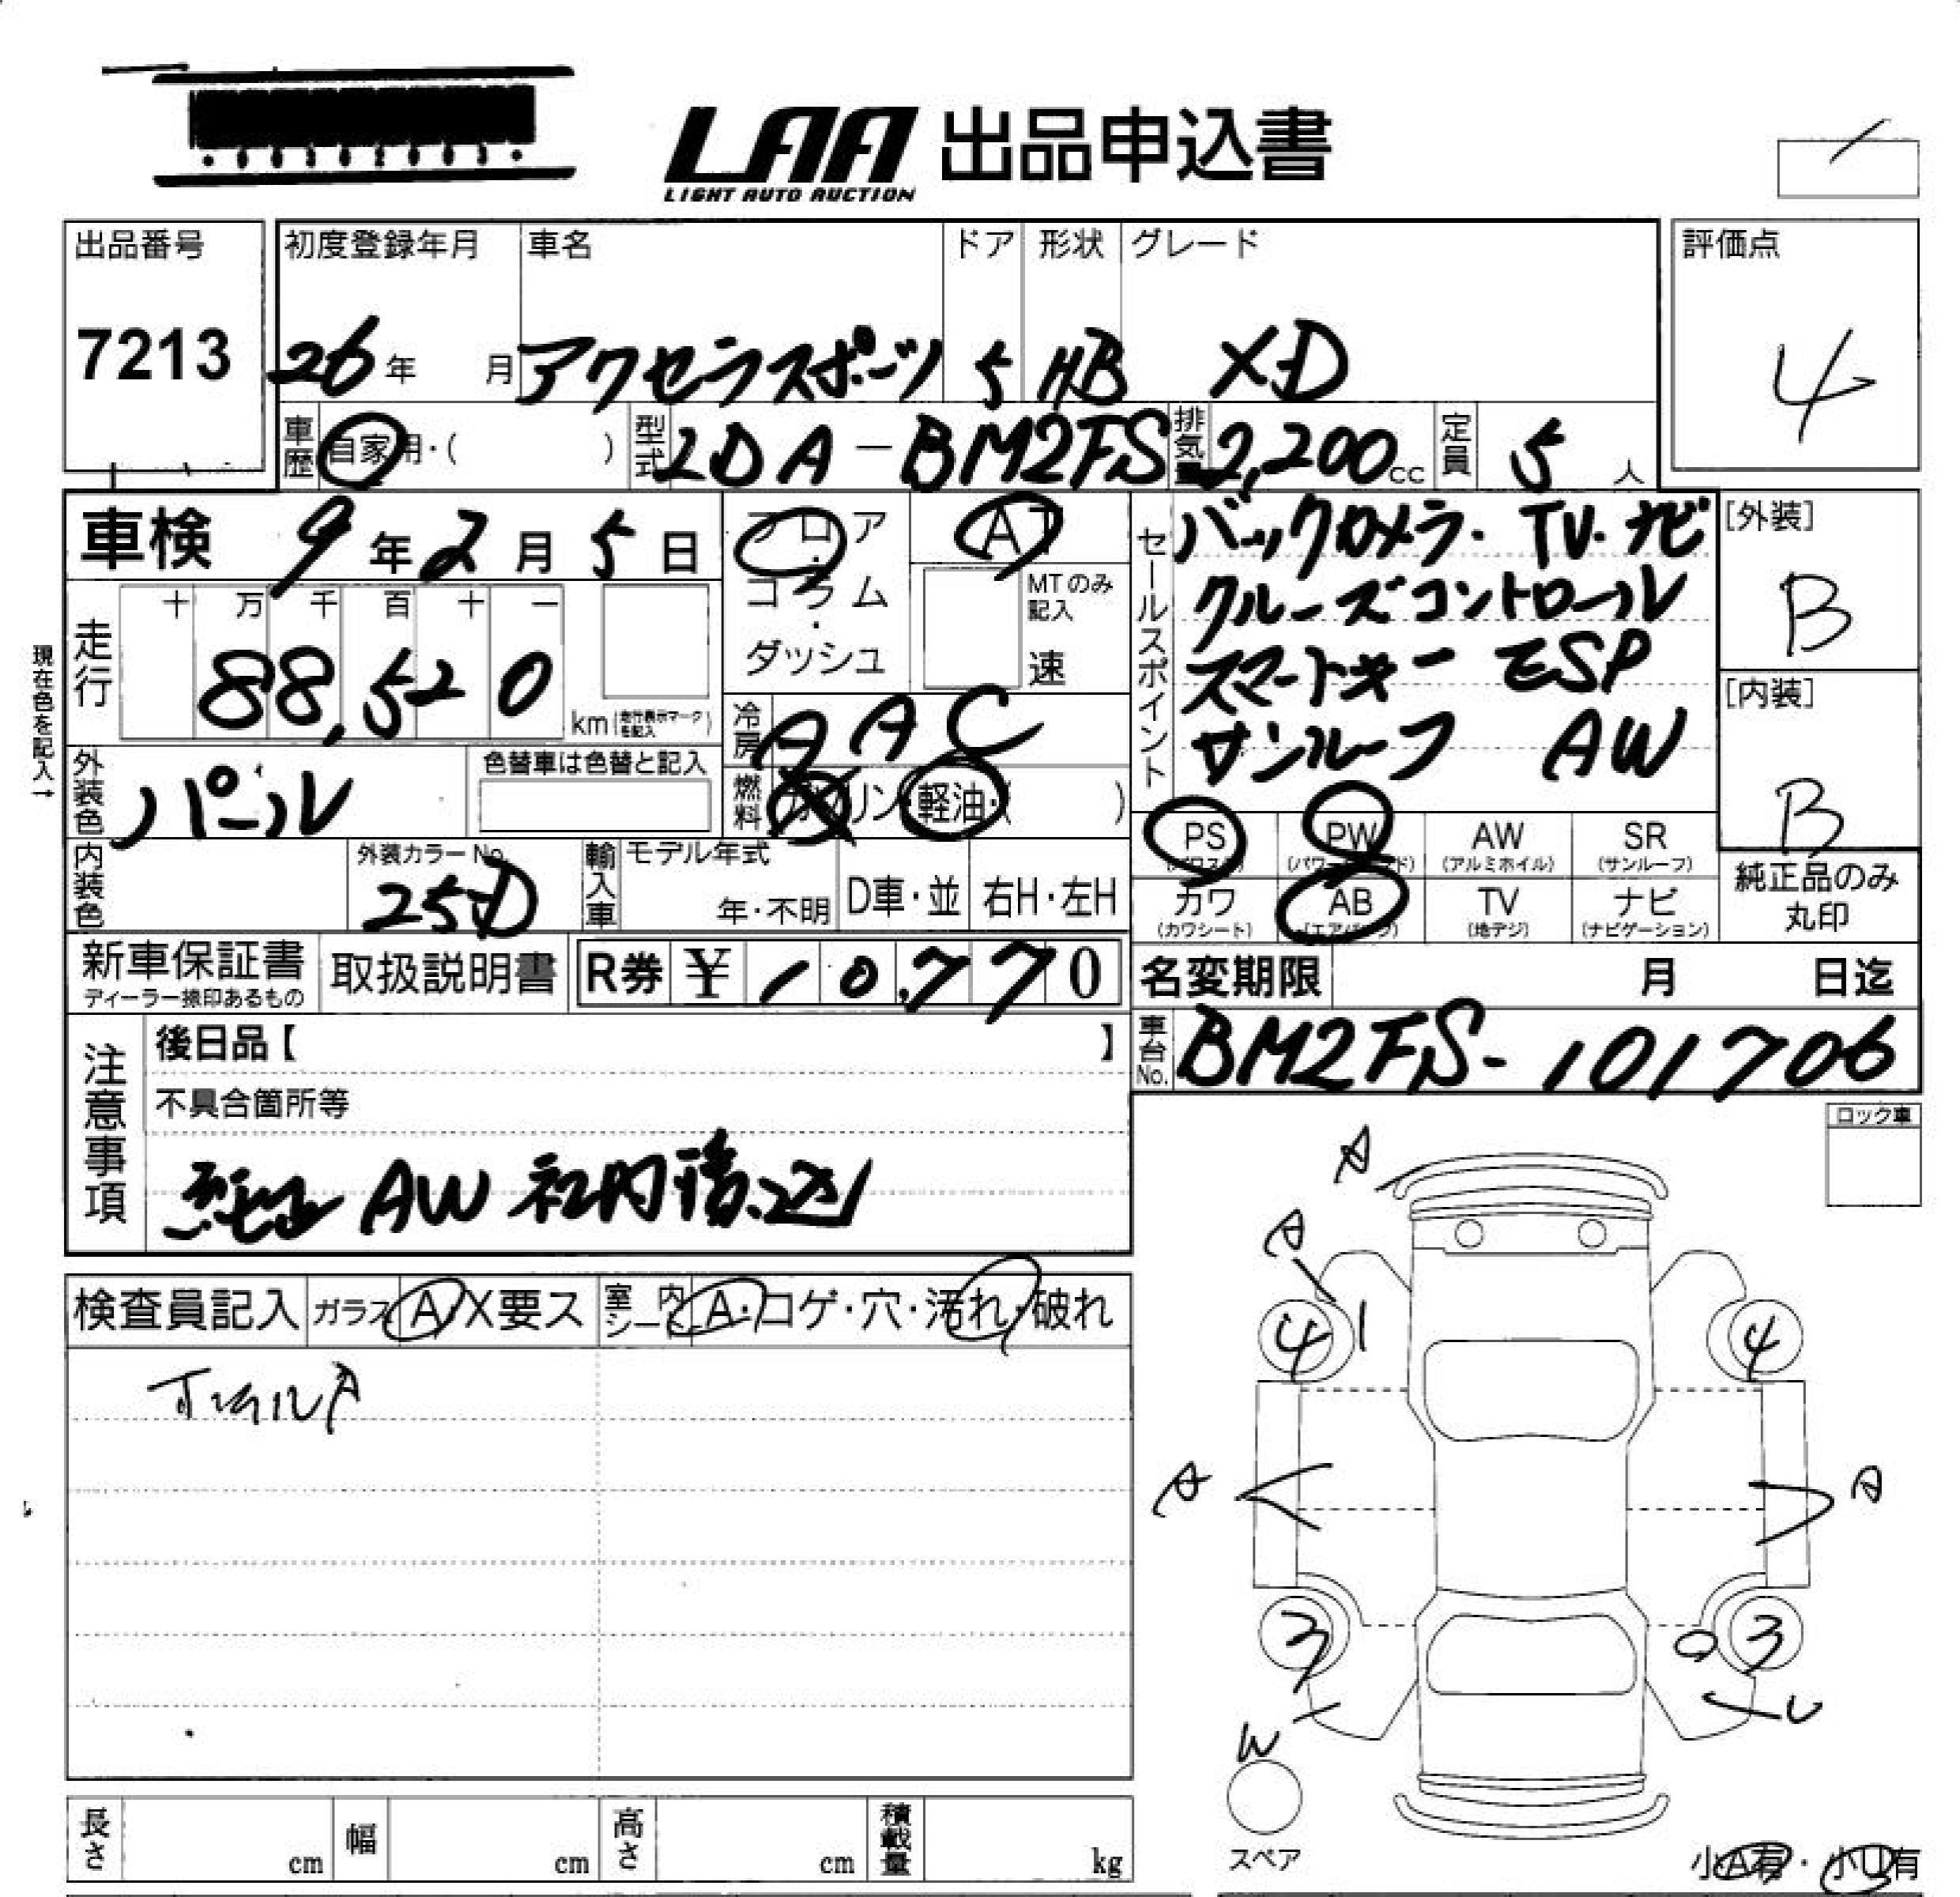 LAA 出品申込書
LIGHT AUTO AUCTION
出品番号 初度登録年月 車名 ドア 形状 グレード 評価点
7213 26年 月 アクセラスポーツ 5 HB XD 4
車歴 自家用・( ) 型式 LDA-BM2FS 排気量 2,200cc 定員 5人
車検 9年2月5日 フロア・コラム・ダッシュ AT
MTのみ記入 速
現在色を記入→
走行 十 万 千 百 十 一
88,520 km(走行表示マークを記入)
冷房 AAC
燃料 ガソリン・軽油・( )
外装色 パール 色替車は色替と記入
内装色 外装カラーNo. 25D 輸入車 モデル年式 年・不明 D車・並 右H・左H
セールスポイント
バックカメラ・TV・ナビ
クルーズコントロール
スマートキー ESP
サンルーフ AW
[外装] B
[内装] B
PS (パワステ) PW (パワーウインド) AW (アルミホイル) SR (サンルーフ)
カワ (カワシート) AB (エアバッグ) TV (地デジ) ナビ (ナビゲーション)
純正品のみ丸印
新車保証書 ディーラー捺印あるもの 取扱説明書 R券 ¥10,770
名変期限 月 日迄
車台No. BM2FS-101706
注意事項
後日品【 】
不具合箇所等
純正AW 社内積込
ロック車
検査員記入 ガラス A・X要ス 室内シート A・コゲ・穴・汚れ・破れ
ホイルA
A
A
4 4
A A
3 3
U
W
スペア
長さ cm 幅 cm 高さ cm 積載量 kg
小A有・小U有